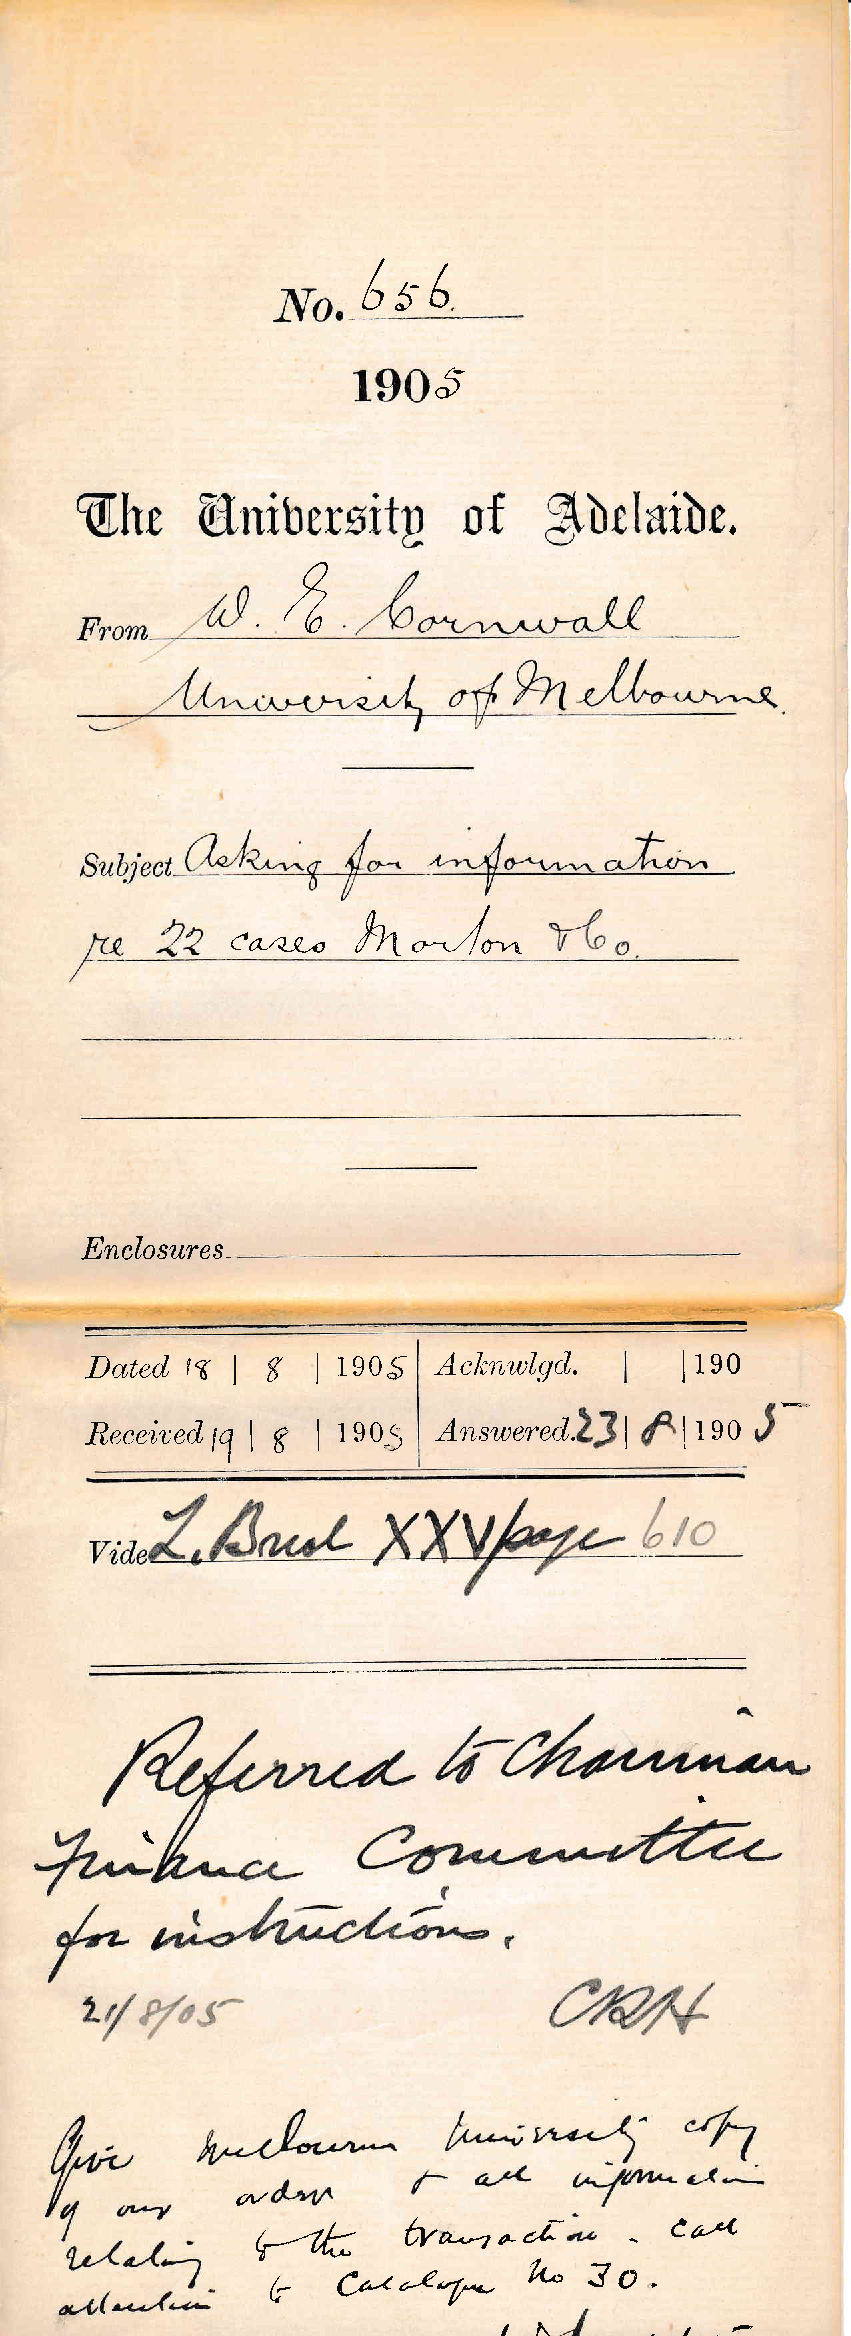 No. 656.
1905
The University of Adelaide.
From W. E. Cornwall
University of Melbourne.
Subject Asking for information
re 22 cases Morton & Co.
Enclosures
Dated 18 | 8 | 1905 Acknwlgd. | | 190
Received 19 | 8 | 1905 Answered. 23 | 8 | 1905
Vide L. Book XXV page 610
Referred to Chairman
Finance Committee
for instructions.
21/8/05 CRH
Give Melbourne University copy
of our order & all information
relating to the transaction. Call
attention to Catalogue No 30.